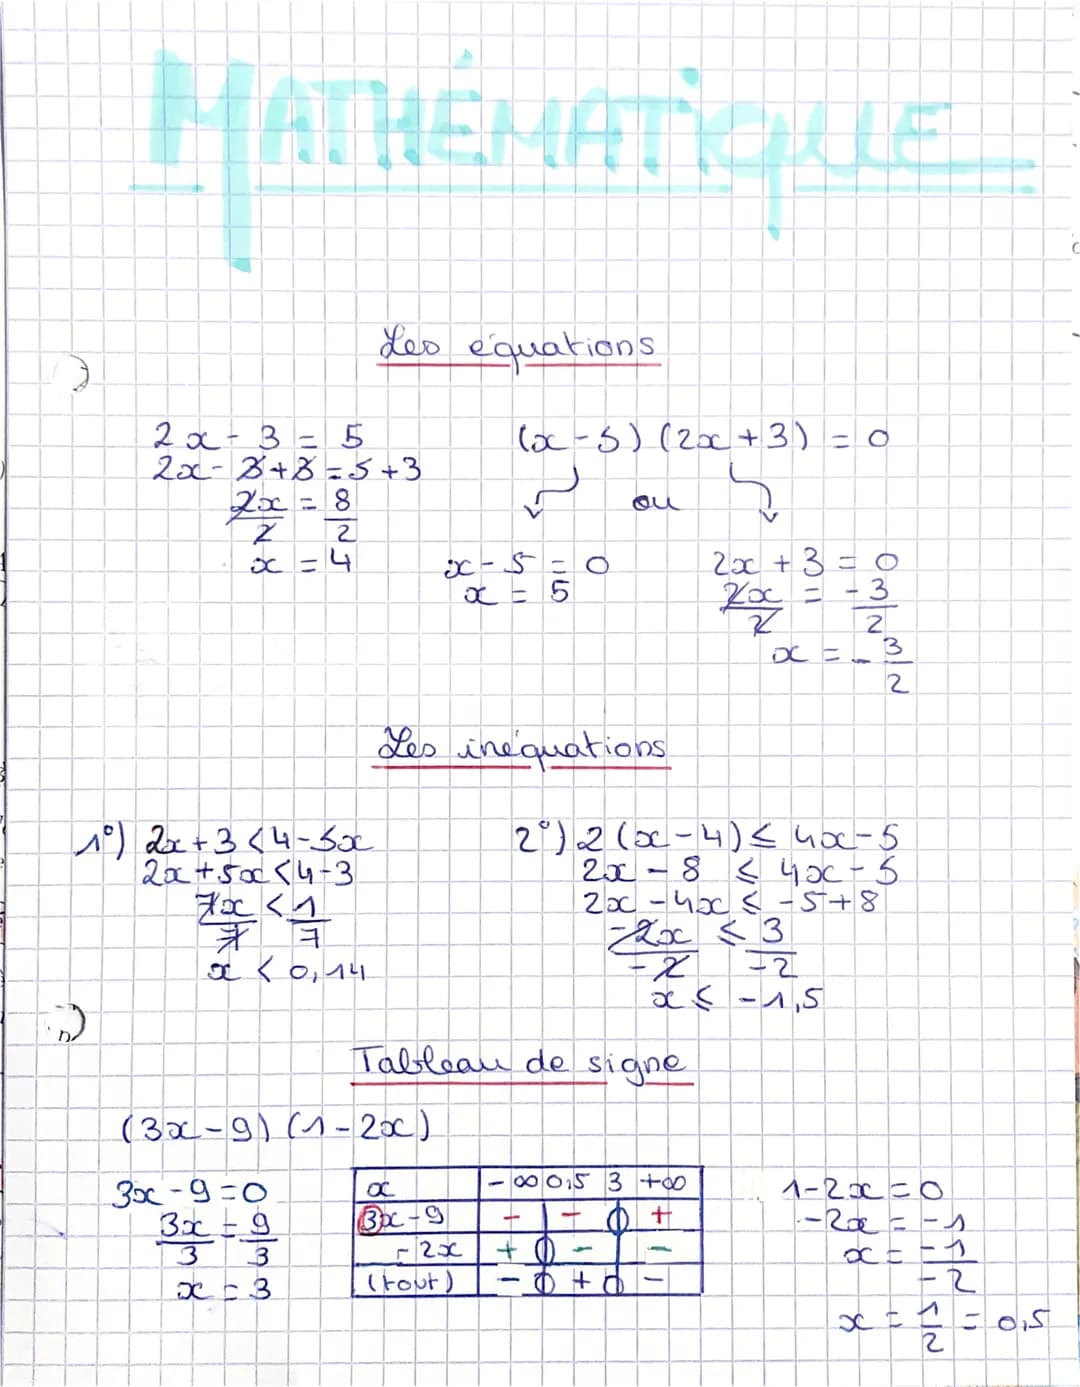 MATHÉMATIQUE
Les équations
2x - 3 = 5
2x - 3 + 3 = 5 + 3
2x/2 = 8/2
x = 4
(x - 5) (2x + 3) = 0
ou
x - 5 = 0
x = 5
2x + 3 = 0
2x/2 = -3/2
x = - 3/2
Les inéquations
1°) 2x + 3 < 4 - 5x
2x + 5x < 4 - 3
7x/7 < 1/7
x < 0,14
2°) 2 (x - 4) ≤ 4x - 5
2x - 8 ≤ 4x - 5
2x - 4x ≤ -5 + 8
-2x/-2 ≤ 3/-2
x ≤ -1,5
Tableau de signe
(3x - 9) (1 - 2x)
3x - 9 = 0
3x/3 = 9/3
x = 3
x -∞ 0,5 3 +∞
3x - 9 - - 0 +
- 2x + 0 - -
(tout) - 0 + 0 -
1 - 2x = 0
-2x = -1
x = -1/-2
x = 1/2 = 0,5